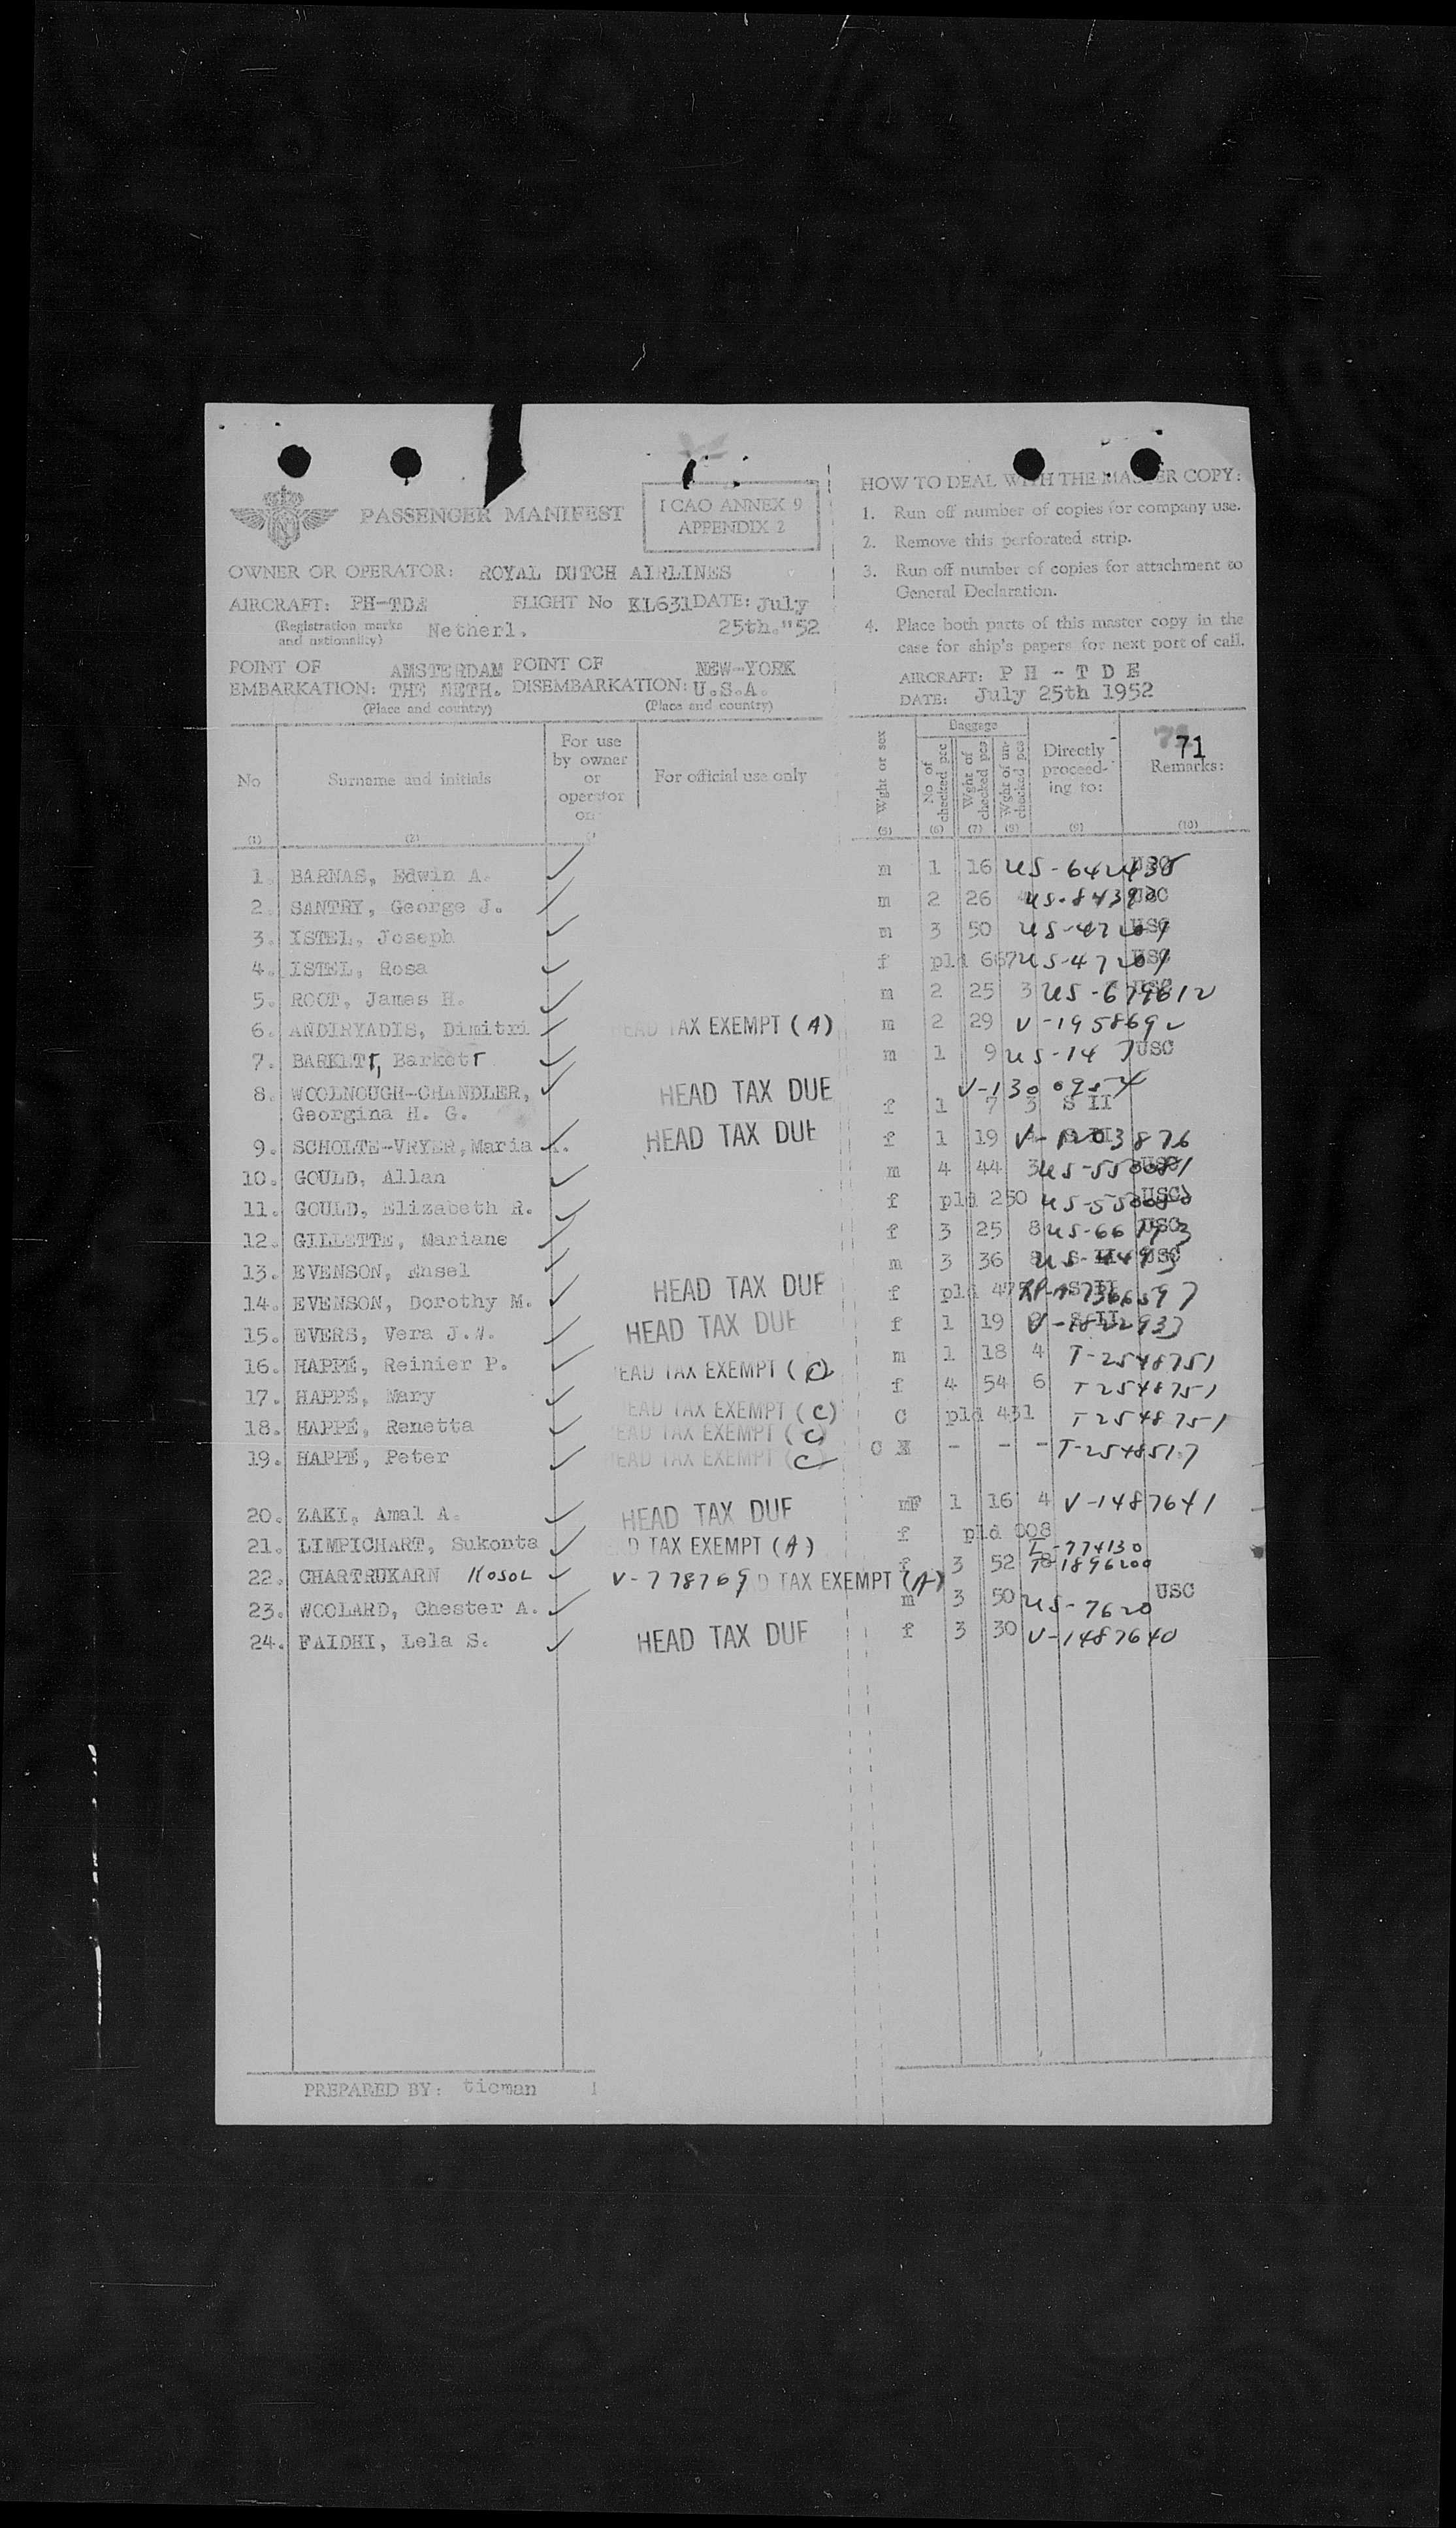 PASSENGER MANIFEST
ICAO ANNEX 9
APPENDIX 2
OWNER OR OPERATOR: ROYAL DUTCH AIRLINES
AIRCRAFT: PH-TDE FLIGHT No KL631 DATE: July
(Registration marks and nationality) Netherl. 25th."52
POINT OF EMBARKATION: AMSTERDAM THE NETH. POINT OF DISEMBARKATION: NEW-YORK U.S.A.
(Place and country) (Place and country)
HOW TO DEAL WITH THE MASTER COPY:
1. Run off number of copies for company use.
2. Remove this perforated strip.
3. Run off number of copies for attachment to
General Declaration.
4. Place both parts of this master copy in the
case for ship's papers for next port of call.
AIRCRAFT: PH-TDE
DATE: July 25th 1952
71
No Surname and initials For use by owner or operator on For official use only Wght or sex Baggage No of checked pce Wght of checked pcs Wght of un-checked pcs Directly proceed-ing to: Remarks:
(1) (2) (5) (6) (7) (8) (9) (10)
1. BARNAS, Edwin A. m 1 16 US-642435 USC
2. SANTRY, George J. m 2 26 USC
3. ISTEL, Joseph m 3 50 US-47209 USC
4. ISTEL, Rosa f pld 667 US-47209 USC
5. ROOT, James H. m 2 25 3 US-679612
6. ANDIRYADIS, Dimitri HEAD TAX EXEMPT (A) m 2 29 V-1958692
7. BARKETT, Barkett m 1 9 US-14 7 USC
8. WOOLNOUGH-CHANDLER, HEAD TAX DUE V-1300954
Georgina H. G. f 1 7 3 S II
9. SCHOLTE-VRYER, Maria HEAD TAX DUE f 1 19 V-1203876
10. GOULD, Allan m 4 44 3 US-550081 USC
11. GOULD, Elizabeth R. f pld 250 US-550080 USC
12. GILLETTE, Mariane f 3 25 8 USC
13. EVENSON, Ensel m 3 36 8 USC
14. EVENSON, Dorothy M. HEAD TAX DUE f pld S II
15. EVERS, Vera J.W. HEAD TAX DUE f 1 19 S II
16. HAPPÉ, Reinier P. HEAD TAX EXEMPT (C) m 1 18 4 T-2548751
17. HAPPÉ, Mary HEAD TAX EXEMPT (C) f 4 54 6 T2548751
18. HAPPÉ, Renetta HEAD TAX EXEMPT (C) C pld 431 T2548751
19. HAPPÉ, Peter HEAD TAX EXEMPT (C) C - - - T-2548517
20. ZAKI, Amal A. HEAD TAX DUE F 1 16 4 V-1487641
21. LIMPICHART, Sukonta TAX EXEMPT (A) f pld 008 I-774130
22. CHARTRUKARN KOSOL V-778769 TAX EXEMPT (A) f 3 52 1896200
23. WOOLARD, Chester A. m 3 50 US-7620 USC
24. FAIDHI, Lela S. HEAD TAX DUE f 3 30 V-1487640
PREPARED BY: ticman 1